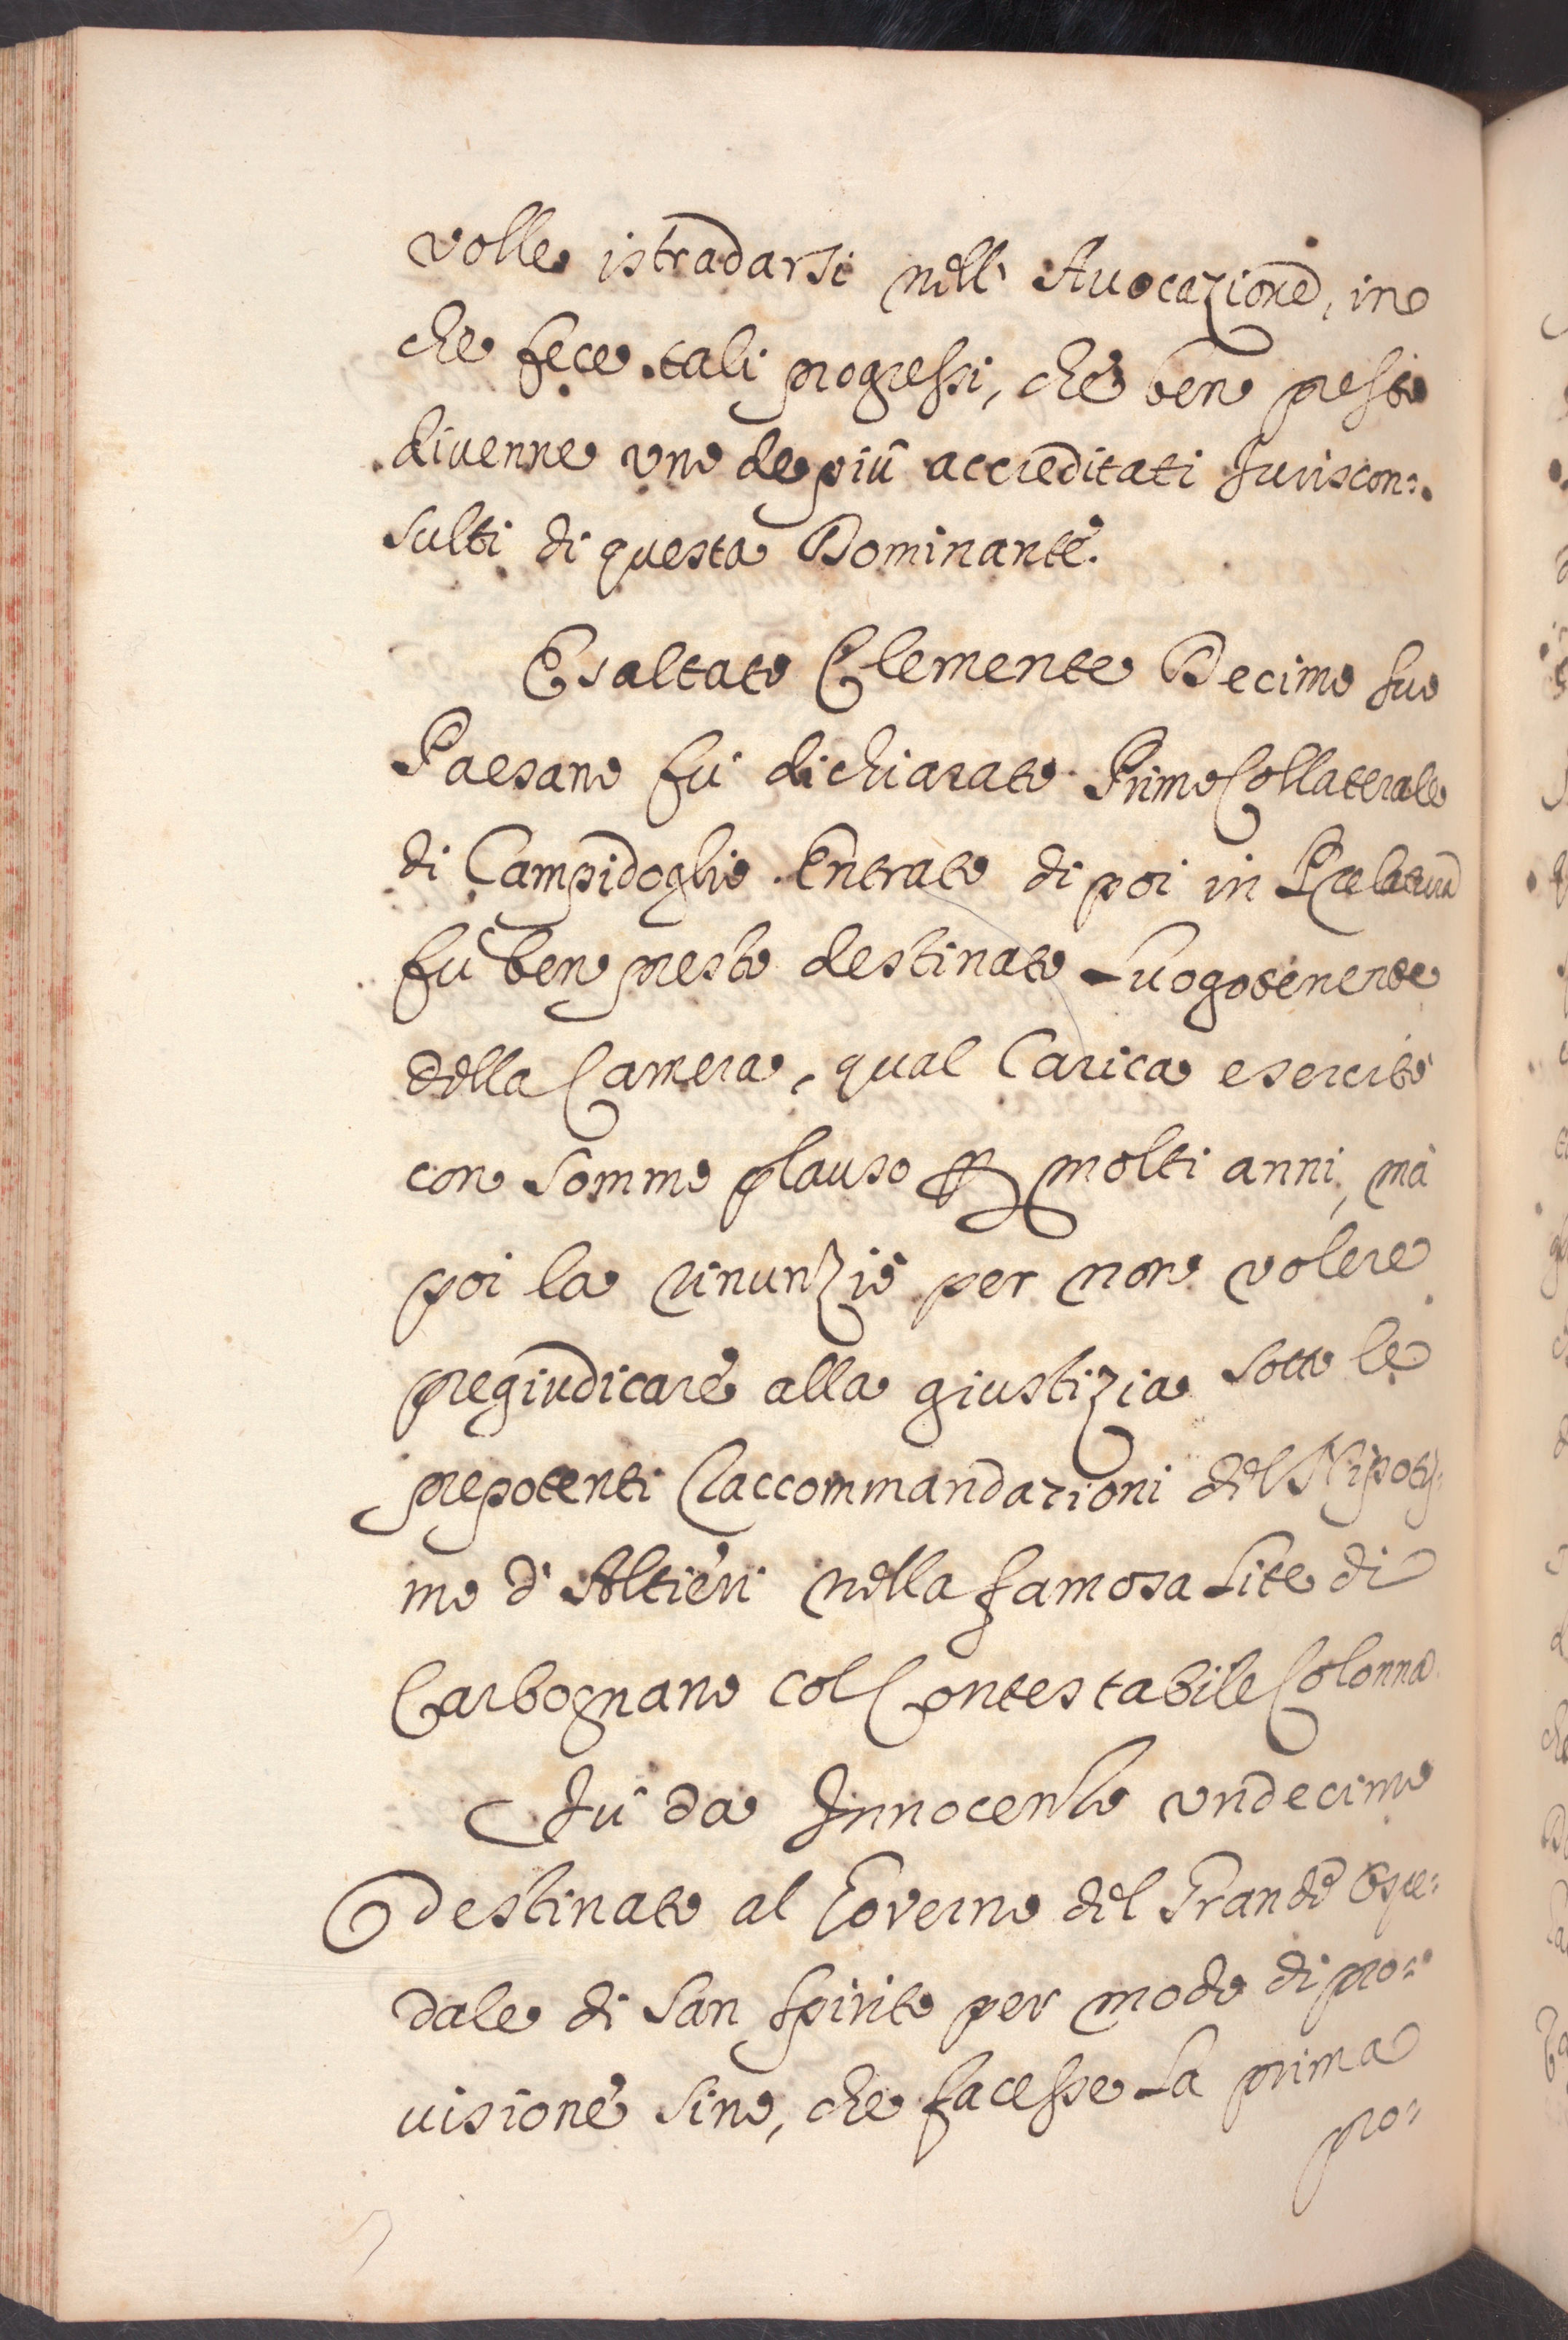 volle istradarsi nell' Auocazione, in
che fece tali progressi, che ben presto
divenne uno de più accreditati Juriscon:
sulti di questa Dominante.
Esaltato Clemente Decimo suo
Paesano fù dichiarato Primo Collaterale
di Campidoglio. Entrato di poi in Prelatura
fù ben presto destinato Luogotenente
della Camera, qual Carica esercitò
con sommo plauso p molti anni, mà
poi la rinunziò per non volere
pregiudicare alla giustizia sotto le
prepotenti Raccommandazioni del Nipotis:
mo d'Altieri nella famosa Lite di
Carbognano col Contestabile Colonna.
Fù da Innocentio undecimo
Destinato al Governo del Grande Ospe:
dale di San Spirito per modo di pro:
uisione sino, che facesse La prima
pro: